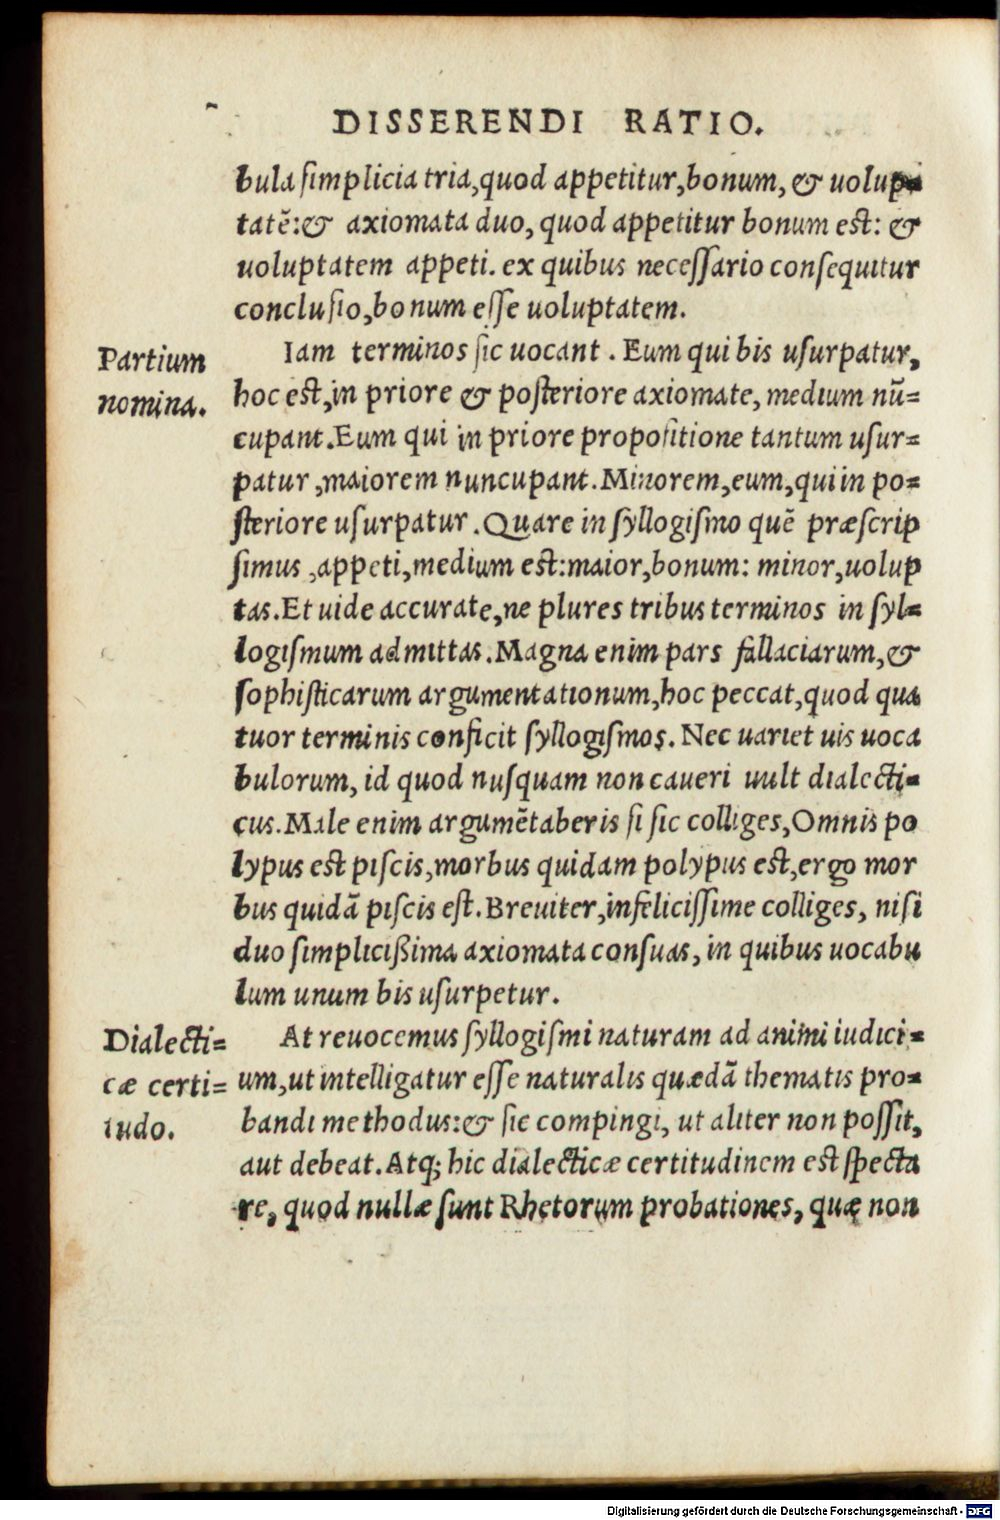 DISSERENDI RATIO.
bula ſimplicia tria,quod appetitur,bonum, & uolup
tatẽ:& axiomata duo, quod appetitur bonum est: &
uoluptatem appeti. ex quibus neceſſario conſequitur
concluſio,bonum eſſe uoluptatem.
Partium
nomina.
Iam terminos ſic uocant . Eum qui bis uſurpatur,
hoc est,in priore & poſteriore axiomate, medium nũ=
cupant.Eum qui in priore propoſitione tantum uſur=
patur ,maiorem nuncupant.Minorem,eum,qui in po=
ſteriore uſurpatur .Quare in ſyllogiſmo quẽ præſcrip
ſimus ,appeti,medium est:maior,bonum: minor,uolup
tas.Et uide accurate,ne plures tribus terminos in ſyl=
logiſmum admittas.Magna enim pars fallaciarum,&
ſophiſticarum argumentationum,hoc peccat,quod qua
tuor terminis conficit ſyllogiſmos. Nec uariet uis uoca
bulorum, id quod nuſquam non caueri uult dialecti=
cus.Male enim argumẽtaberis ſi ſic colliges,Omnis po
lypus est piſcis,morbus quidam polypus est,ergo mor
bus quidã piſcis eſt.Breuiter,infeliciſſime colliges, niſi
duo ſimplicißima axiomata conſuas, in quibus uocabu
lum unum bis uſurpetur.
Dialecti=
cæ certi=
tudo.
At reuocemus ſyllogiſmi naturam ad animi iudici=
um,ut intelligatur eſſe naturalis quædã thematis pro=
bandi methodus:& ſic compingi, ut aliter non poſſit,
aut debeat.Atq; hic dialecticæ certitudinem est ſpecta
re, quod nullæ ſunt Rhetorum probationes, quæ non
Digitalisierung gefördert durch die Deutsche Forschungsgemeinschaft - DFG